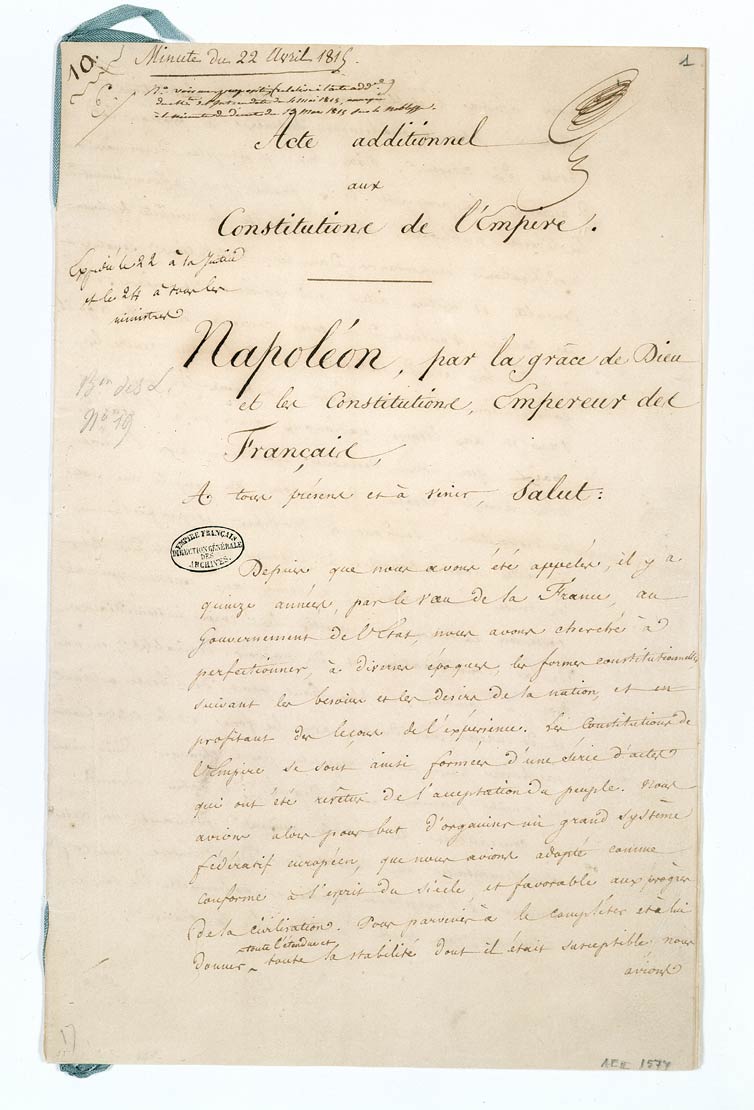 10.
Minute du 22 Avril 1815
1
Acte additionnel
aux
Constitutions de l'Empire.
Expédié le 22 à la Justice
et le 24 à tous les
ministres
Napoléon, par la grâce de Dieu
et les Constitutions, Empereur des
Français,
A tous présens et à venir, Salut:
Bin des L.
No 19
EMPIRE FRANÇAIS
DIRECTION GÉNÉRALE
DES
ARCHIVES.
Depuis que nous avons été appelés, il y a
quinze années, par le vœu de la France, au
Gouvernement de l'Etat, nous avons cherché à
perfectionner, à diverses époques, les formes constitutionnelles,
suivant les besoins et les desirs de la nation, et en
profitant des leçons de l'expérience. Les Constitutions de
l'Empire se sont ainsi formées d'une série d'actes
qui ont été revêtus de l'acceptation du peuple. Nous
avions alors pour but d'organiser un grand système
fédératif européen, que nous avions adopté comme
conforme à l'esprit du siècle et favorable aux progrès
de la civilisation. Pour parvenir à le compléter et à lui
toute l'étendue et
donner toute la stabilité dont il était susceptible, nous
avions
AE II 1577